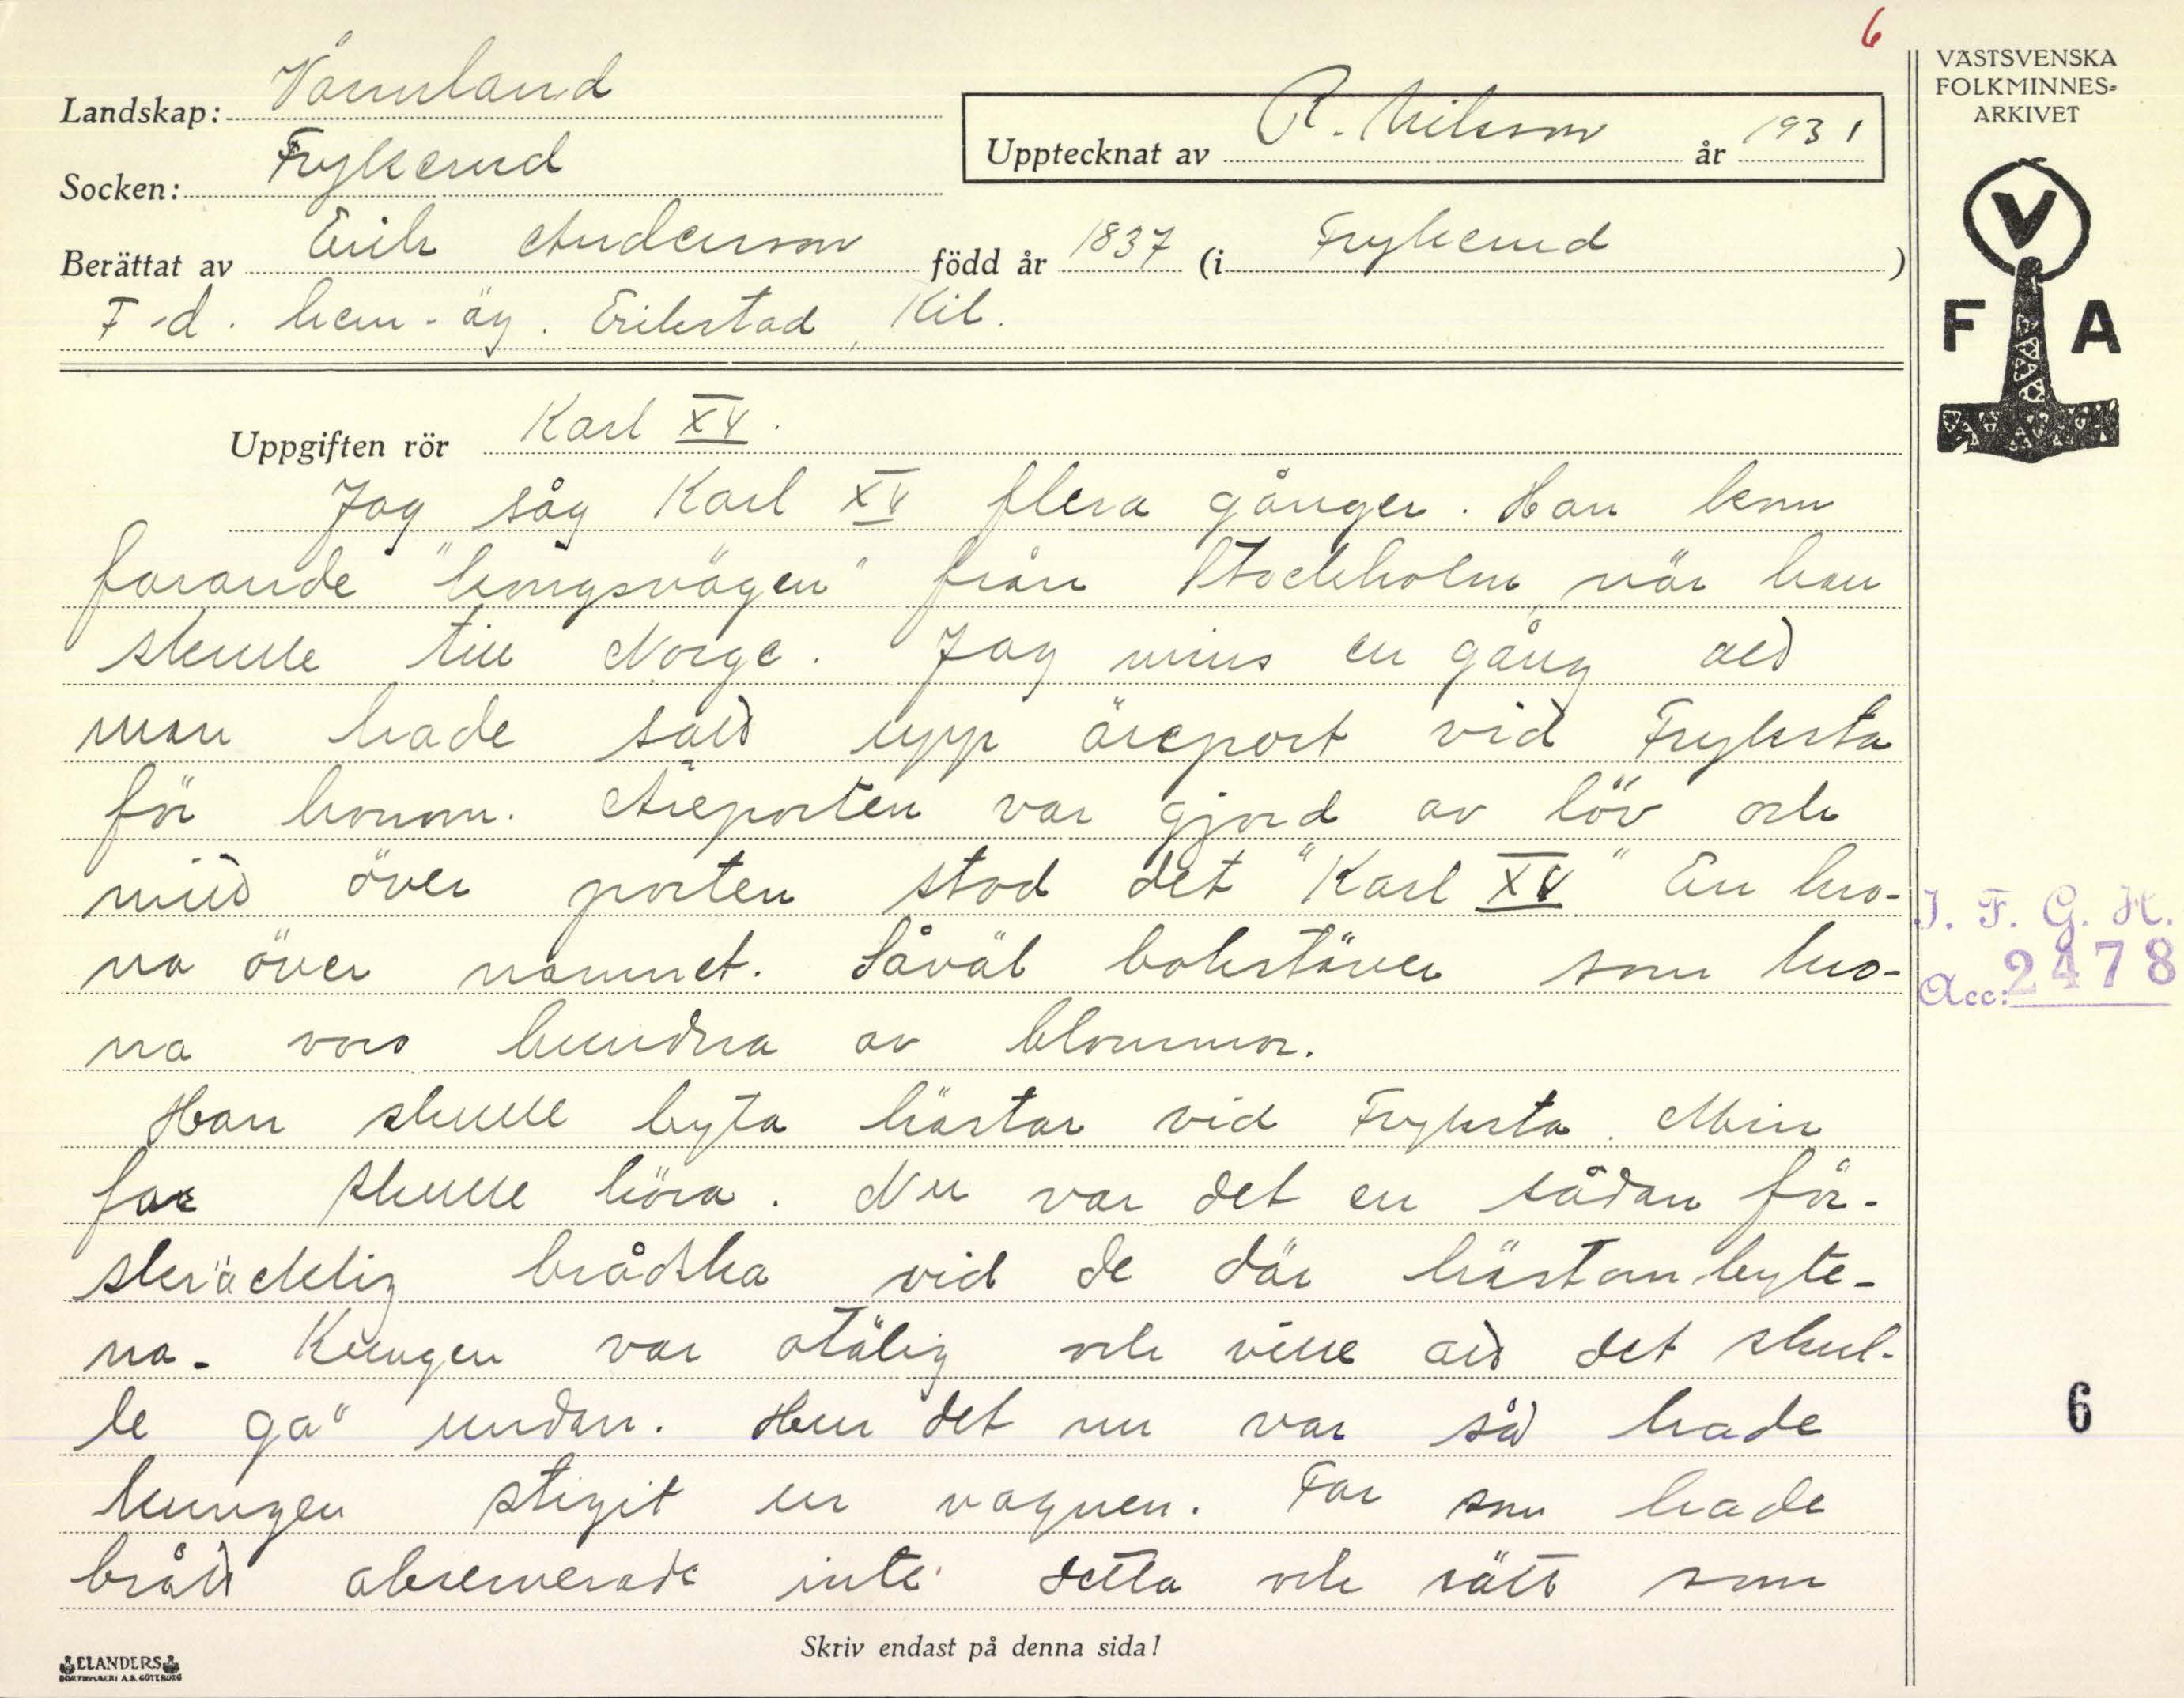 6
Landskap: Värmland
Socken: Frykerud
Upptecknat av R. Nilsson år 1931
Berättat av Erik Anderson född år 1837 (i Frykerud)
F.d. hem.äg. Erikstad, Kil.
VÄSTSVENSKA
FOLKMINNES-
ARKIVET
V
F A
Uppgiften rör Karl XV.
Jag såg Karl XV flera gånger. Han kom
farande "kungsvägen" från Stockholm, när han
skulle till Norge. Jag mins en gång att
man hade satt upp äreport vid Fryksta
för honom. Äreporten var gjord av löv och
mitt över porten stod det "Karl XV" En kro-
na över namnet. Såväl bokstäver som kro-
na voro bundna av blommor.
Han skulle byta hästar vid Fryksta. Min
far skulle köra. Nu var det en sådan för-
skräcklig brådska vid de där hästombyte-
na. Kungen var otålig och ville att det skul-
le gå undan. Hur det nu var så hade
kungen stigit ur vagnen. Far som hade
brått observerade inte detta och rätt som
J. F. G. H.
Acc: 2478
6
Skriv endast på denna sida!
ELANDERS
BOKTRYCKERI A.B. GÖTEBORG